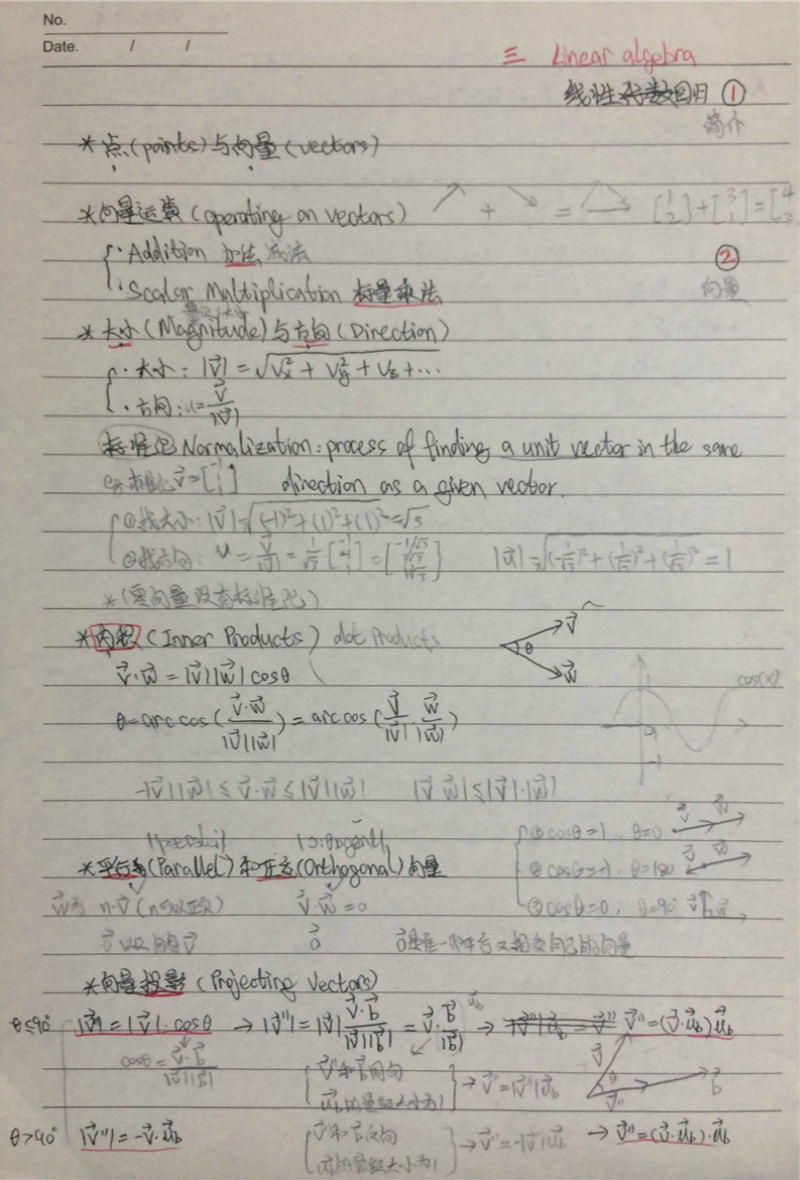 No.
Date. / /
三 Linear algebra
线性代数回归 ①
简介
*点(points)与向量(vectors)
*向量运算(operating on vectors) + = [1 2]+[3 1]=[4 3
·Addition 加法, 减法
②
·Scalar Multiplication 标量乘法
向量
*大小(Magnitude)与方向(Direction)
·大小: |v⃗| = √Vx² + Vy² + Vz + ...
·方向: u = v⃗/|v⃗|
标准化 Normalization: process of finding a unit vector in the same
v⃗ = [-1 1 1] direction as a given vector.
①找大小: |v⃗| = √(-1)²+(1)²+(1)² = √3
②找方向: u = v⃗/|v⃗| = 1/√3 [-1 1 1] = [-1/√3 1/√3 1/√3] |u⃗| = √(-1/√3)²+(1/√3)²+(1/√3)² = 1
*(零向量没有标准化)
*内积(Inner Products) dot Products
v⃗ θ w⃗
v⃗·w⃗ = |v⃗||w⃗| cosθ
cos(x)
θ = arccos(v⃗·w⃗/|v⃗||w⃗|) = arccos(v⃗/|v⃗|·w⃗/|w⃗|)
-|v⃗||w⃗| ≤ v⃗·w⃗ ≤ |v⃗||w⃗| |v⃗ w⃗| ≤ |v⃗|·|w⃗|
①cosθ=1, θ=0 v⃗ w⃗
*平行(Parallel)和正交(Orthogonal)向量
②cosθ=-1, θ=180 v⃗ w⃗
w⃗为 n·v⃗ (n可以正负) v⃗·w⃗=0
③cosθ=0, θ=90° v⃗ w⃗
0⃗ 0⃗是唯一平行又相交自己的向量
*向量投影(Projecting Vectors)
θ≤90° |v⃗''| = |v⃗|·cosθ → |v⃗''| = |v⃗| v⃗·b⃗/|v⃗||b⃗| = v⃗·b⃗/|b⃗| u⃗b → v⃗'' = (v⃗·u⃗b)u⃗b
cosθ = v⃗·b⃗/|v⃗||b⃗|
v⃗''和b⃗同向
u⃗b的量级大小为1 → v⃗'' = |v⃗''|u⃗b
v⃗ θ v⃗'' b⃗
θ>90° |v⃗''| = -v⃗·u⃗b
v⃗''和b⃗反向
量级大小为1 → v⃗'' = -|v⃗''|u⃗b → v⃗'' = (v⃗·u⃗b)·u⃗b